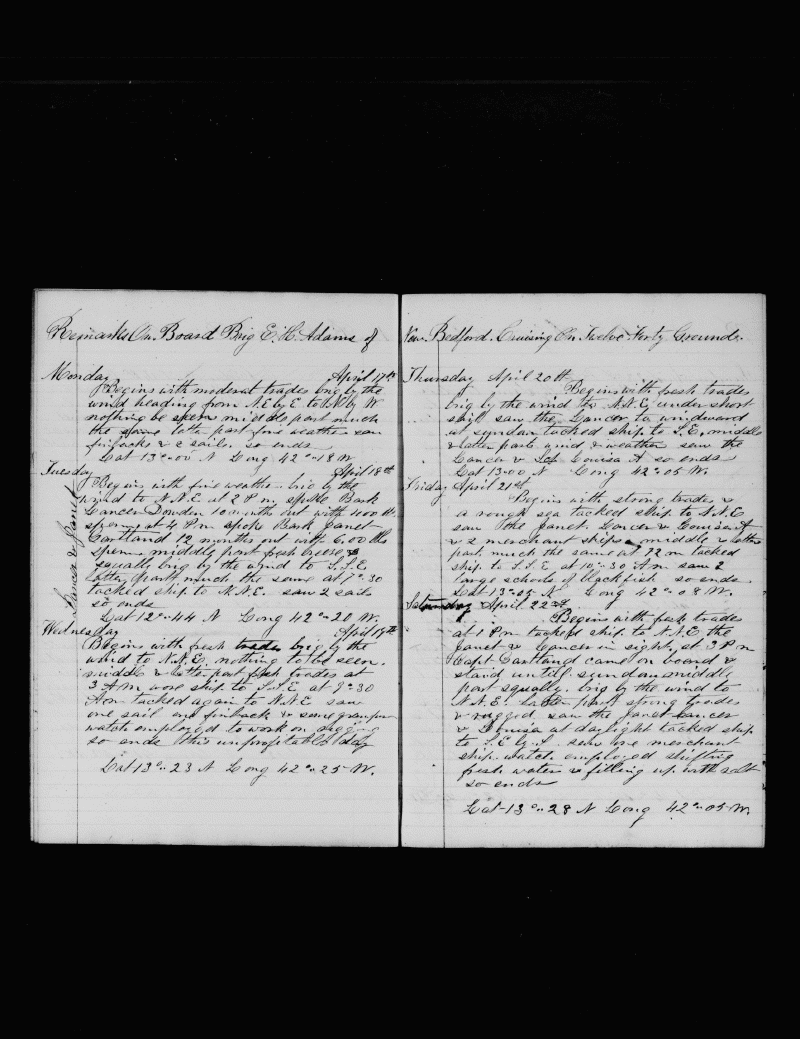 Remarks On Board Brig E. H. Adams of
Monday April 17th
Begins with moderat trades brig by the
wind heading from N.E. by E to N by W
nothing be seen middle part much
the same latter part fine weather saw
finbacks & 2 sails. so ends
Lat 13°-00 N Long 42°-18 W
Tuesday April 18th
Begins with fine weather brig by the
wind to N.N.E at 2 P.m. spoke Bark
Lancer Dowden 10 months out with 400 bls
sperm at 4 Pm spoke Bark Janet
Gartland 12 months out with 600 bls
sperm middle part fresh breeze &
squally brig by the wind to S.S.E
latter part much the same at 7-30
tacked ship to N.N.E. saw 2 sails
so ends
Lat 12°-44 N Long 42°-20 W.
Lancer & Janet
Wednesday April 19th
Begins with fresh trades brig by the
wind to N.N.E. nothing to be seen.
middle & latter part fresh trades at
3 A M wore ship to S.S.E at 9-30
A m tacked again to N.N.E saw
one sail and finback & some grampus
watch employed to work on rigging
so ends this unprofitable day
Lat 13°-23 N Long 42°-25 W.
New Bedford. Cruising On Twelve Forty Grounds.
Thursday April 20th
Begins with fresh trades
brig by the wind to N.N.E, under short
sail saw the Lancer to windward
at sundown tacked ship to S.E, middle
& latter parts wind & weather saw the
Lancer & Louisa A so ends
Lat 13-00 N Long 42°-05 W.
Friday April 21st
Begins with strong trades &
a rough sea tacked ship to N.N.E
saw the Janet. Lancer & Louisa A
& 2 merchant ships middle & latter
part much the same at 12 m tacked
ship to S.S.E at 10-30 Am saw 2
large schools of blackfish so ends
Lat 13°-05 N Long 42°-08 W.
Saturday April 22d
Begins with fresh trades
at 1 P m tacked ship to N.N.E the
Janet & Lancer in sight, at 3 P m
Capt Gartland came on board &
staid until sundown middle
part squally. brig by the wind to
N.N.E. latter part strong trades
& rugged saw the Janet Lancer
& Louisa at daylight tacked ship
to S.E by S. saw one merchant
ship. watch employed shifting
fresh water & filling up with salt
so ends
Lat 13°-28 N Long 42°-05 W.